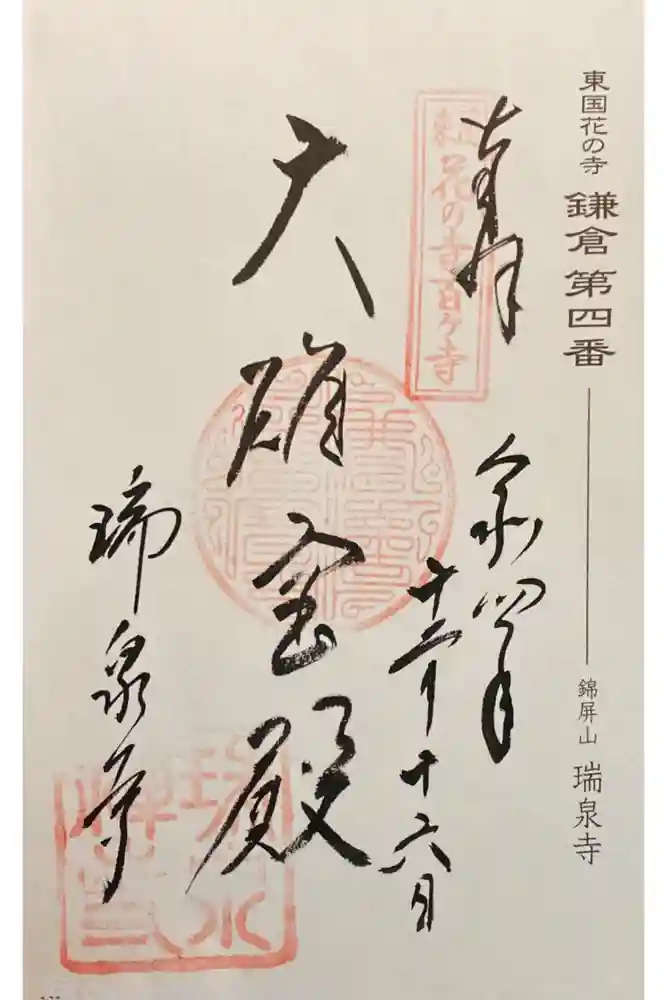 東国花の寺 鎌倉第四番 錦屏山 瑞泉寺
奉拝
東国花の寺百ヶ寺
令和四年
十二月十六日
大雄宝殿
瑞泉寺